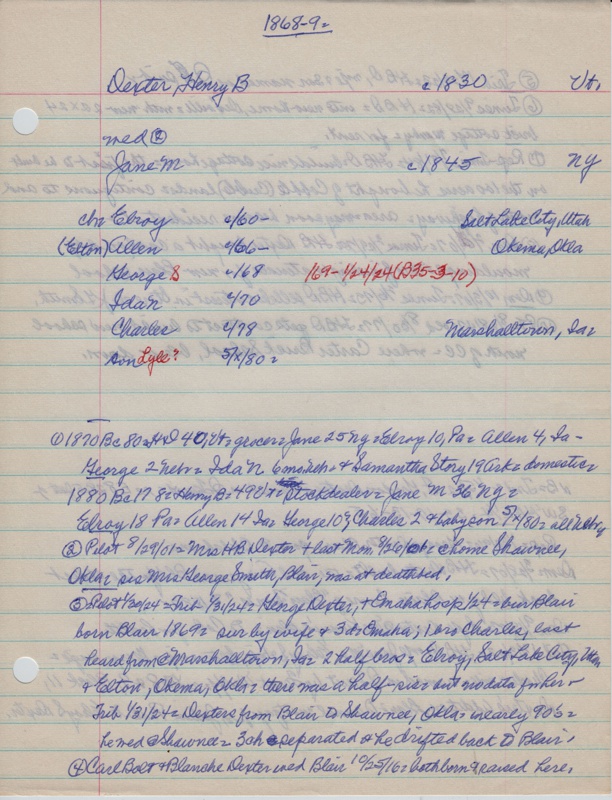 1868-9=
Dexter, Henry B c1830 Vt.
med ②
Jane M c1845 NY
ch= Elroy c/60- Salt Lake City, Utah
(Elton) Allen c/66- Okema, Okla
George S c/68 /69-1/24/24 (B35-3-10)
Ida N c/70
Charles c/78 Marshalltown, Ia=
son Lyle? 5/x/80=
① 1870 Bc 80= H D 40, Vt= grocer= Jane 25 NY= Elroy 10, Pa= Allen 4, Ia-
George 2 Nebr= Ida N 6mo Neb= + Samantha Story 19 Ark= domestic=
1880 Bc 17 8= Henry B= 49 Vt= Stockdealer= Jane M 36 NY=
Elroy 18 Pa= Allen 14 Ia= George 10, Charles 2 + baby son 5/x/80= all Nebr
② Pilot 8/29/01= Mrs HB Dexter + last Mon 8/26/01= c home Shawnee,
Okla= sis Mrs George Smith, Blair, was at deathbed.
③ Pilot 1/30/24= Trib 1/31/24= George Dexter, + Omaha hosp 1/24= bur Blair
born Blair 1869= sur by wife + 3 d= Omaha; 1 bro Charles, last
heard from @ Marshalltown, Ia= 2 half bros= Elroy, Salt Lake City, Utah
+ Elton, Okema, Okla= there was a half-sis= but no data for her-
Trib 1/31/24= Dexters from Blair to Shawnee, Okla= in early 90's=
he med @ Shawnee= 3 ch= separated + he drifted back to Blair.
④ Carl Bolt + Blanche Dexter med Blair 10/25/16= both born + raised here.